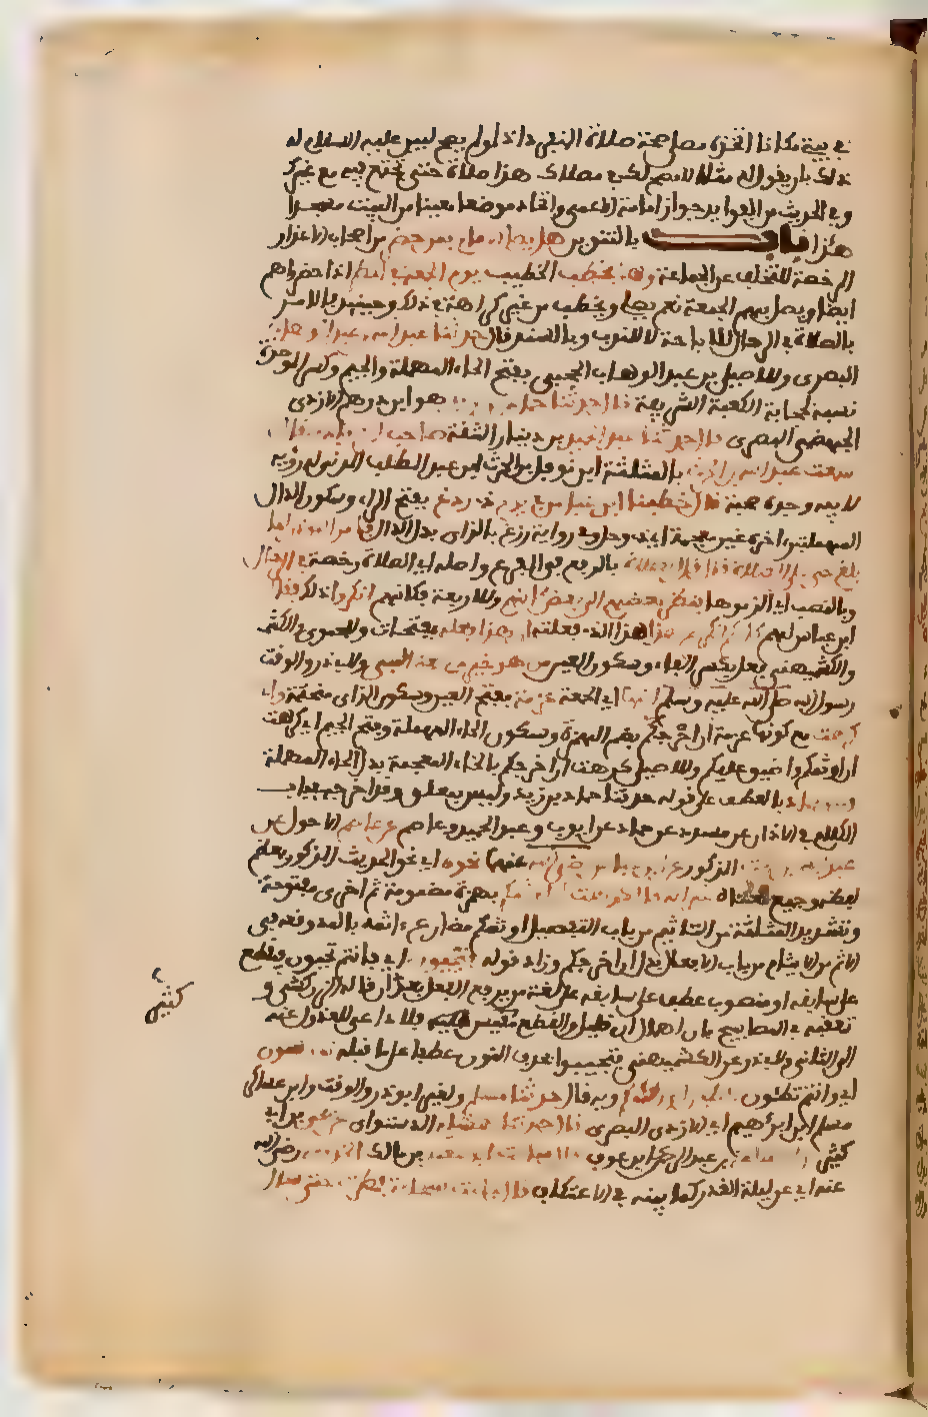 في بيته مكانا اتخذه مصلى صحة صلاة النفل
ذلك بان يقول له مثلا لا يصح لك في مصلاك هذا صلاة حتى تجتمع فيه مع غيرك
وفي الحديث من الفوائد جواز امامة الاعمى واتخاذ موضعا معينا من البيت مسجدا
هذا باب بالتنوين هل يصلى الامام بمن حضر من اصحاب الاعذار
الرخصة للتخلف عن الجماعة وهل يخطب الخطيب يوم الجمعة في المطر اذا حضر واهم
ايضا ويصلي بهم الجمعة نعم يصلي ويخطب من غير كراهة في ذلك وحينئذ فالامر
بالصلاة في الرحال للاباحة لا للندب وبالسند قال حدثنا عبد الله بن عبد الوهاب
البصري وللاصيلي بن عبد الوهاب الحجبي بفتح الحاء المهملة والجيم وكسر الموحدة
نسبة لحجابة الكعبة الشريفة قال حدثنا حماد بن زيد هو ابن درهم الازدي
الجهضمي البصري قال حدثنا عبد الحميد بن دينار الثقة صاحب الزيادي قال
سمعت عبد الله بن الحرث بالمثلثة ابن نوفل بن الحرث ابن عبد المطلب المدني له رؤية
لابيه وجده صحبة قال خطبنا ابن عباس في يوم ذي ردغ بفتح الراء وسكون الدال
المهملتين اخره غين معجمة اي ذي وحل وفي رواية رزغ بالزاي بدل الدال فامر المؤذن لما
بلغ حي على الصلاة قال قل الصلاة بالرفع في الفرع واصله اي الصلاة رخصة في الرحال
وبالنصب اي الزموها فنظر بعضهم الى بعض زاد ابو ذر وللاربعة فكانهم انكروا ذلك فقال
ابن عباس لهم كانكم انكرتم هذا الذي فعلته ان هذا فعله بفتحات وللحموي والكشم
والكشميهني فعل بكسر الفاء وسكون العين من هو خير مني يعني النبي ولابي ذر والوقت
رسول الله صلى الله عليه وسلم انها اي الجمعة عزمة بفتح العين وسكون الزاي متحتمة واني
كرهت مع كونها عزمة ان احرجكم بضم الهمزة وسكون الحاء المهملة وفتح الجيم اي كرهت
ان اوثمكم واضيق عليكم وللاصيلي كرهت ان اخرجكم بالخاء المعجمة بدل الحاء المهملة
وعن حماد بالعطف على قوله حدثنا حماد بن زيد وليس بمعلق وقد اخرجه في باب
الكلام في الاذان عن مسدد عن حماد عن ايوب وعبد الحميد وعاصم عن عاصم الاحول عن
عبد الله بن الحرث المذكور عن ابن عباس رضي الله عنهما نحوه اي نحو الحديث المذكور بمعظم
لفظه وجميع معناه غير انه قال كرهت ان اؤثمكم بهمزة مضمومة ثم اخرى مفتوحة
وتشديد المثلثة من التاثيم من باب التفعيل
الاثم من الايثام من باب الافعال بدل ان احرجكم وزاد قوله فتجيئون اي فانتم تجيئون فيقطع
عن سابقه او منصوب عطف على سابقه على لغة من يرفع الفعل بعد ان قاله الزركشي و
تعقبه في المصابيح بان اهمال ان قليل والقطع مقيس فلا داعي للعدول عنه
الى الثاني ولابي ذر عن الكشميهني فتجيئوا بحذف النون عطفا على ما قبله تدوسون
اي وانتم تطئون الطين الى ركبكم وبه قال حدثنا مسلم ولغير ابوي ذر والوقت وابن عساكر
مسلم ابن ابراهيم اي الازدي البصري قال حدثنا هشام الدستوائي عن يحيى بن ابي
كثير عن ابي سلمة بن عبد الرحمن ابن عوف قال سالت ابا سعيد بن مالك الخدري رضي الله
عنه اي عن ليلة القدر كما بينه في الاعتكاف فقال جاءت سحابة فمطرت حتى سال
كثير